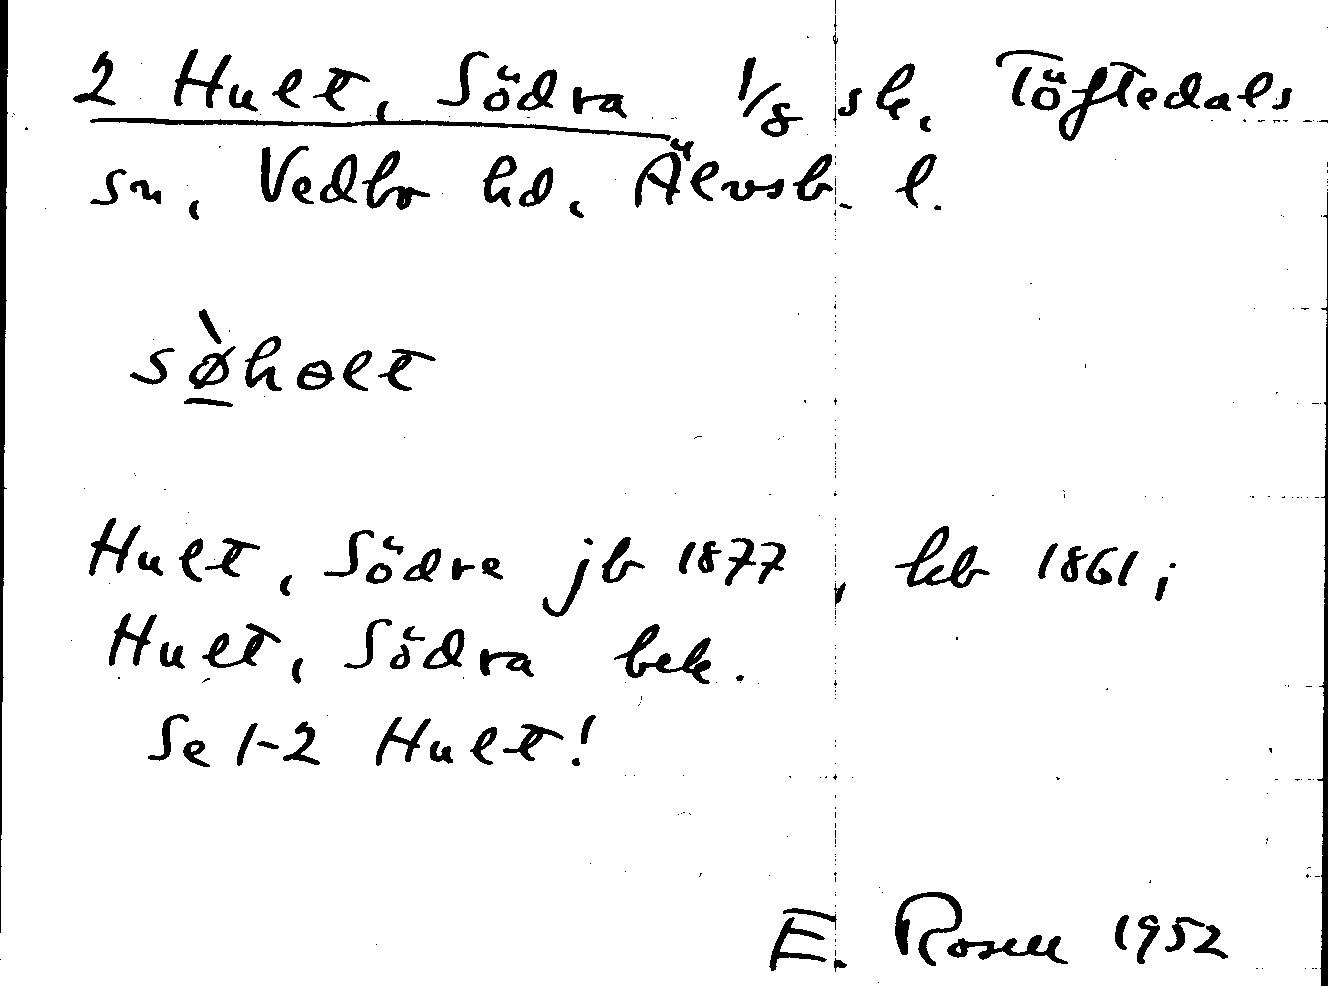 2 Hult, Södra 1/8 sk. Töftedals
sn, Vedbo hd, Älvsb. l.
sø̀hɵlt
Hult, Södre jb 1877, kb 1861;
Hult, Södra bek.
Se 1-2 Hult!
E. Rosell 1952